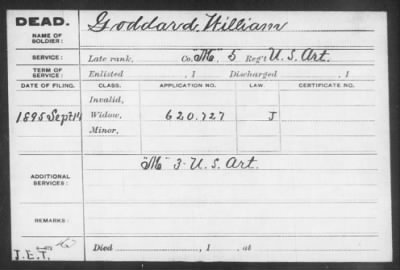 DEAD.
NAME OF SOLDIER: Goddard, William
SERVICE: Late rank, Co. "M" 5 Reg't U.S. Art.
TERM OF SERVICE: Enlisted , 1 Discharged , 1
DATE OF FILING. CLASS. APPLICATION NO. LAW. CERTIFICATE NO.
Invalid,
1895 Sept Widow, 620.727 J
Minor,
ADDITIONAL SERVICES: "M" 3 - U.S. Art.
REMARKS:
J.E.T. Died , 1 , at